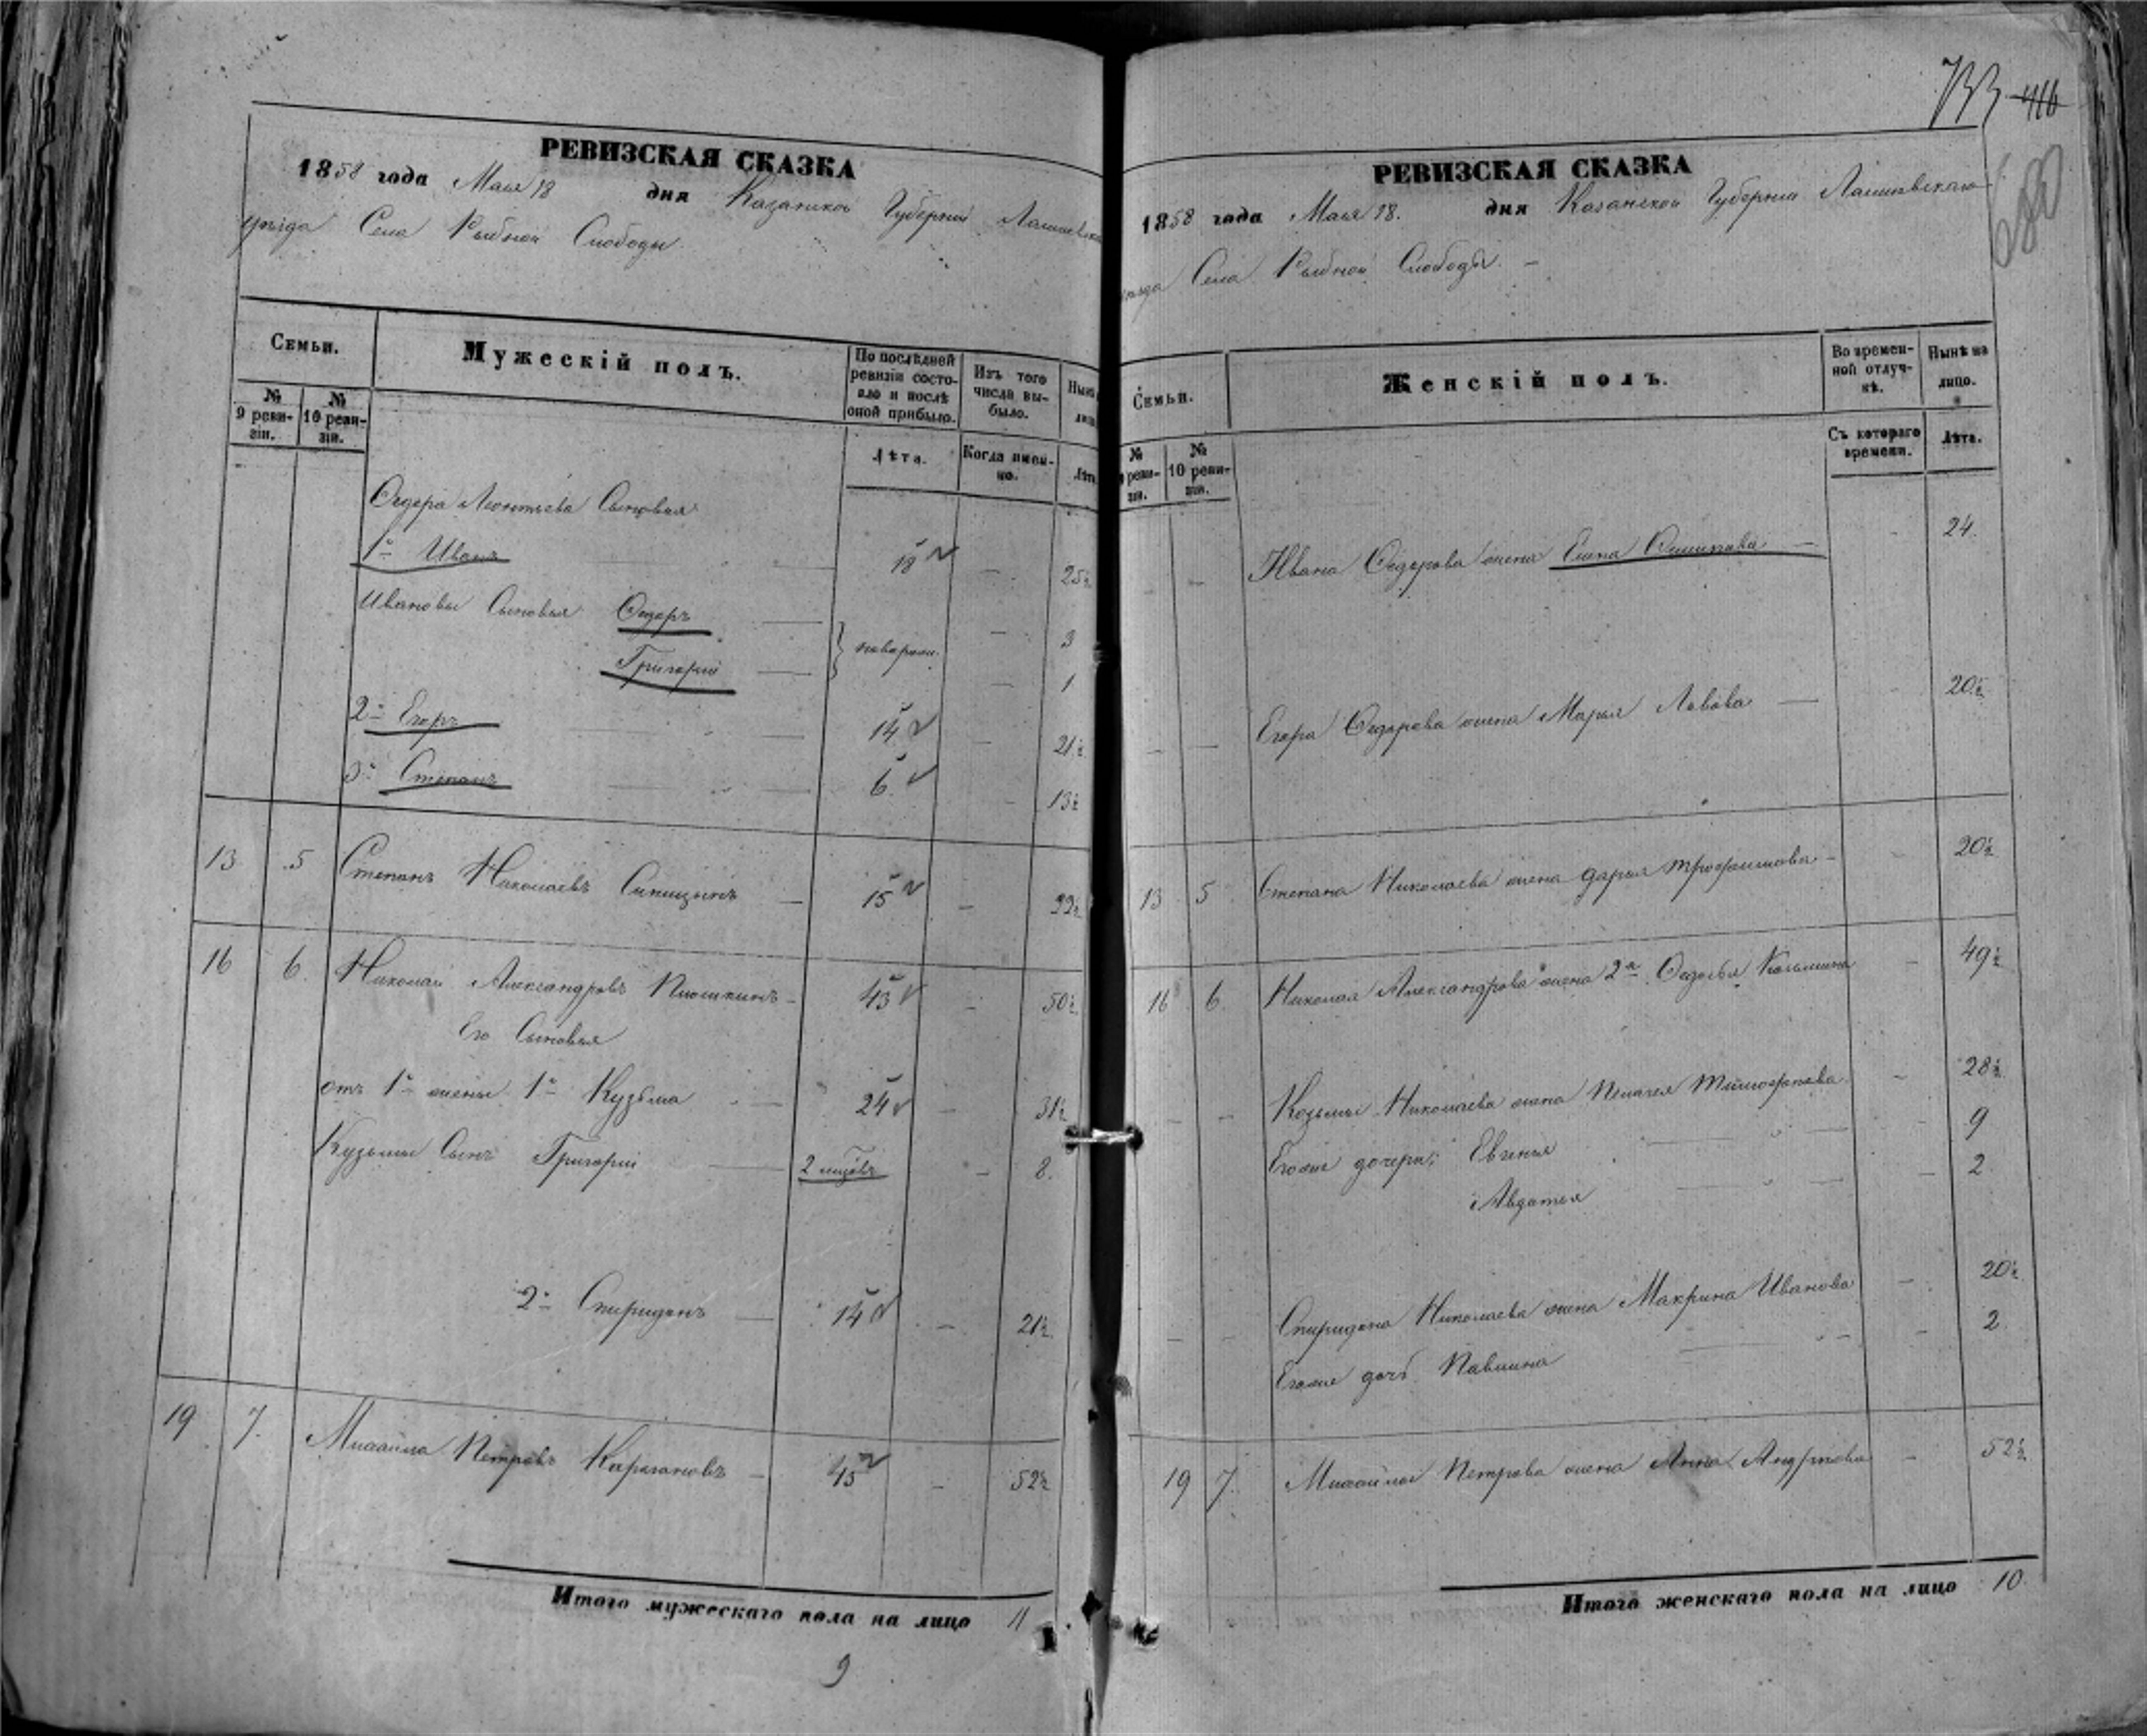 РЕВИЗСКАЯ СКАЗКА
1858 года Мая 18 дня Казанской Губернии Лаишевска
уѣзда Села Рыбной Слободы
Семьи.
Мужескій полъ.
По послѣдней ревизіи состояло и послѣ оной прибыло.
Изъ того числа выбыло.
№ 9 ревизіи.
№ 10 ревизіи.
Лѣта.
Когда именно.
Ѳедора Леонтьева Сыновья
1й Иванъ 18 25½
Ивановы Сыновья Ѳедоръ 3
Григорій 1
2й Егоръ 14 21½
3й Степанъ 6 13½
13 5 Степанъ Николаевъ 15 22½
16 6. Николай Александровъ 43 50½
Его Сыновья
отъ 1й жены 1й Кузьма 24 31½
Кузьмы Сынъ Григорій 8.
2й Спиридонъ 14 21½
19 7. Михайла Петровъ 45 52½
Итого мужескаго пола на лицо 11
9
733 416
680
РЕВИЗСКАЯ СКАЗКА
1858 года Мая 18. дня Казанской Губерніи Лаишевскаго
Села Рыбной Слободы.
Семьи.
Женскій полъ.
Во временной отлучкѣ.
Нынѣ на лицо.
№ 10 ревизіи.
Съ котораго времени.
Лѣта.
Ивана Ѳедорова жена Елена 24.
Егора Ѳедорова жена Марья Львова 20½
13 5 Степана Николаева жена Дарья Трофимова 20½
16 6. Николая Александрова жена 2я Ѳедосья 49½
Козьмы Николаева жена Пелагея Тимофеева 28½
Егоже дочери: Евгенья 9
Авдотья 2
Спиридона Николаева жена Макрина Иванова 20½
Егоже дочь Павлина 2
19 7. Михайлы Петрова жена Анна Андреева 52½
Итого женскаго пола на лицо 10.